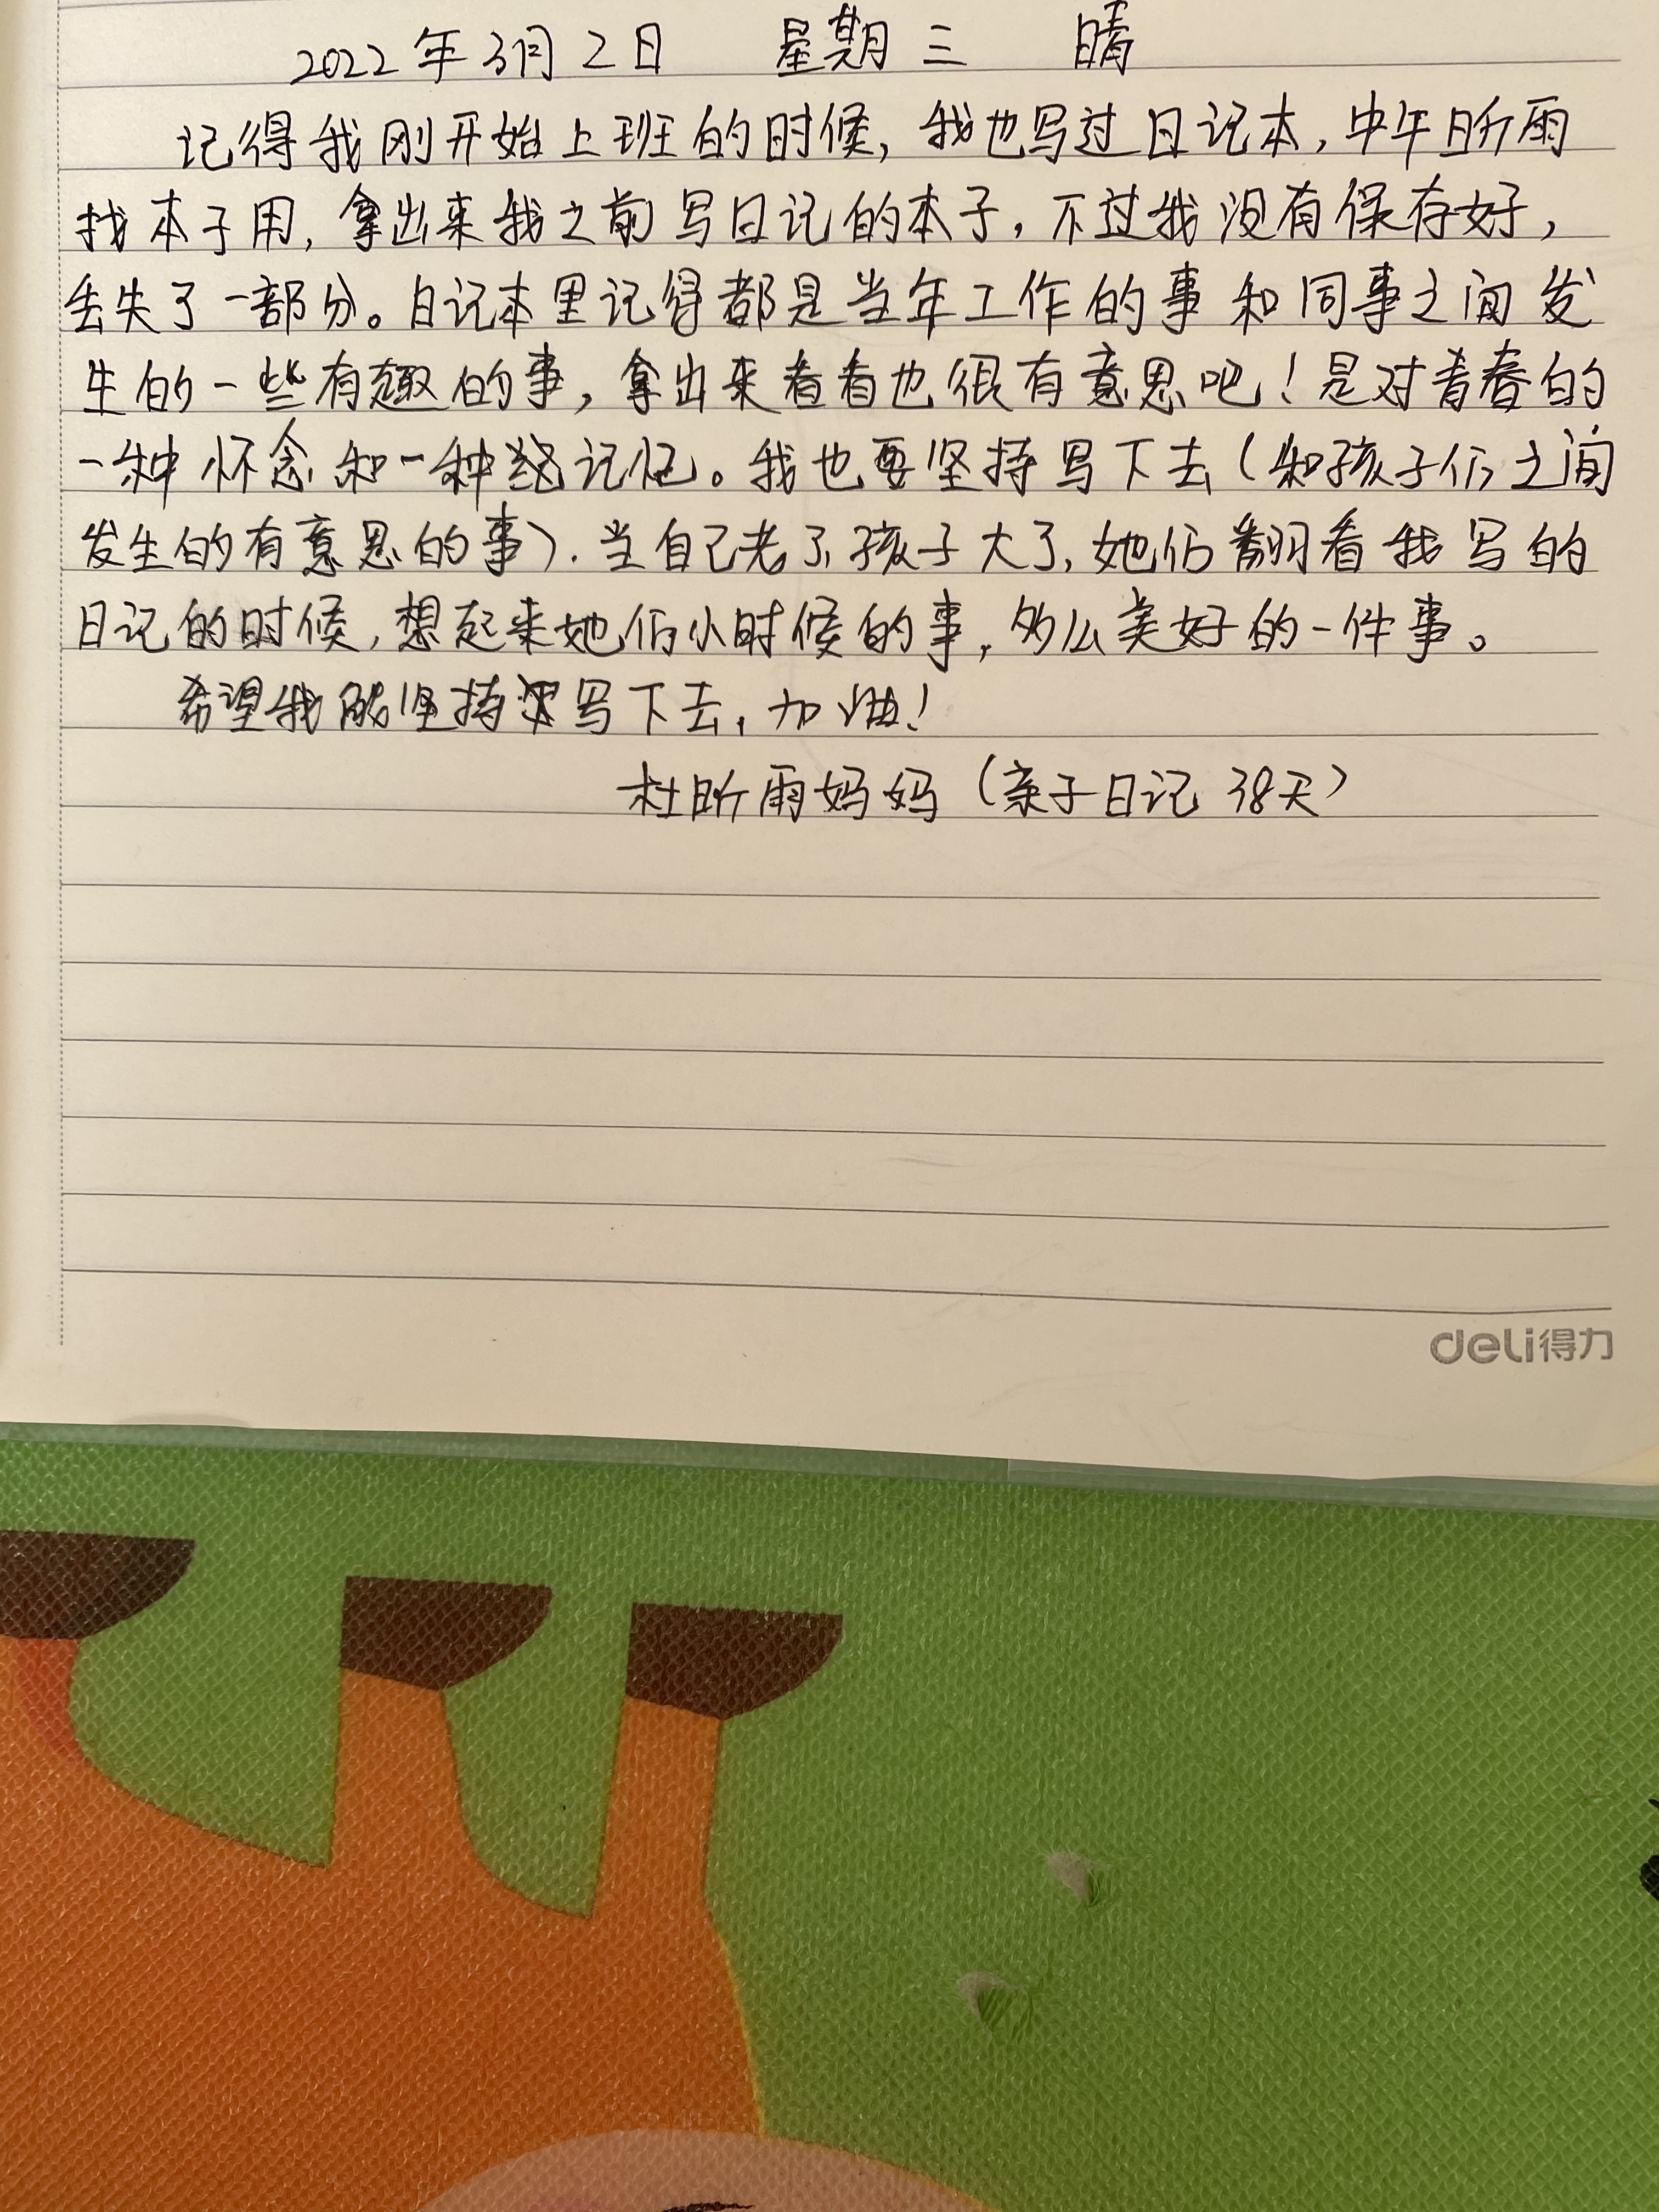 2022年3月2日 星期三 晴
记得我刚开始上班的时候，我也写过日记本，中午昕雨
找本子用，拿出来我之前写日记的本子，不过我没有保存好，
丢失了一部分。日记本里记得都是当年工作的事和同事之间发
生的一些有趣的事，拿出来看看也很有意思吧！是对青春的
一种怀念和一种记忆。我也要坚持写下去（和孩子们之间
发生的有意思的事）.当自己老了孩子大了,她们翻看我写的
日记的时候,想起来她们小时候的事,多么美好的一件事。
希望我能坚持写下去,加油！
杜昕雨妈妈（亲子日记 38天）
deli得力